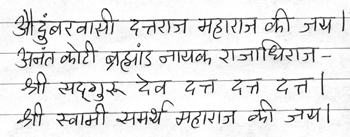 औदुंबरवासी दत्तराज महाराज की जय।
अनंत कोटी ब्रह्मांड नायक राजाधिराज -
श्री सद्‌गुरू देव दत्त दत्त दत्त।
श्री स्वामी समर्थ महाराज की जय।